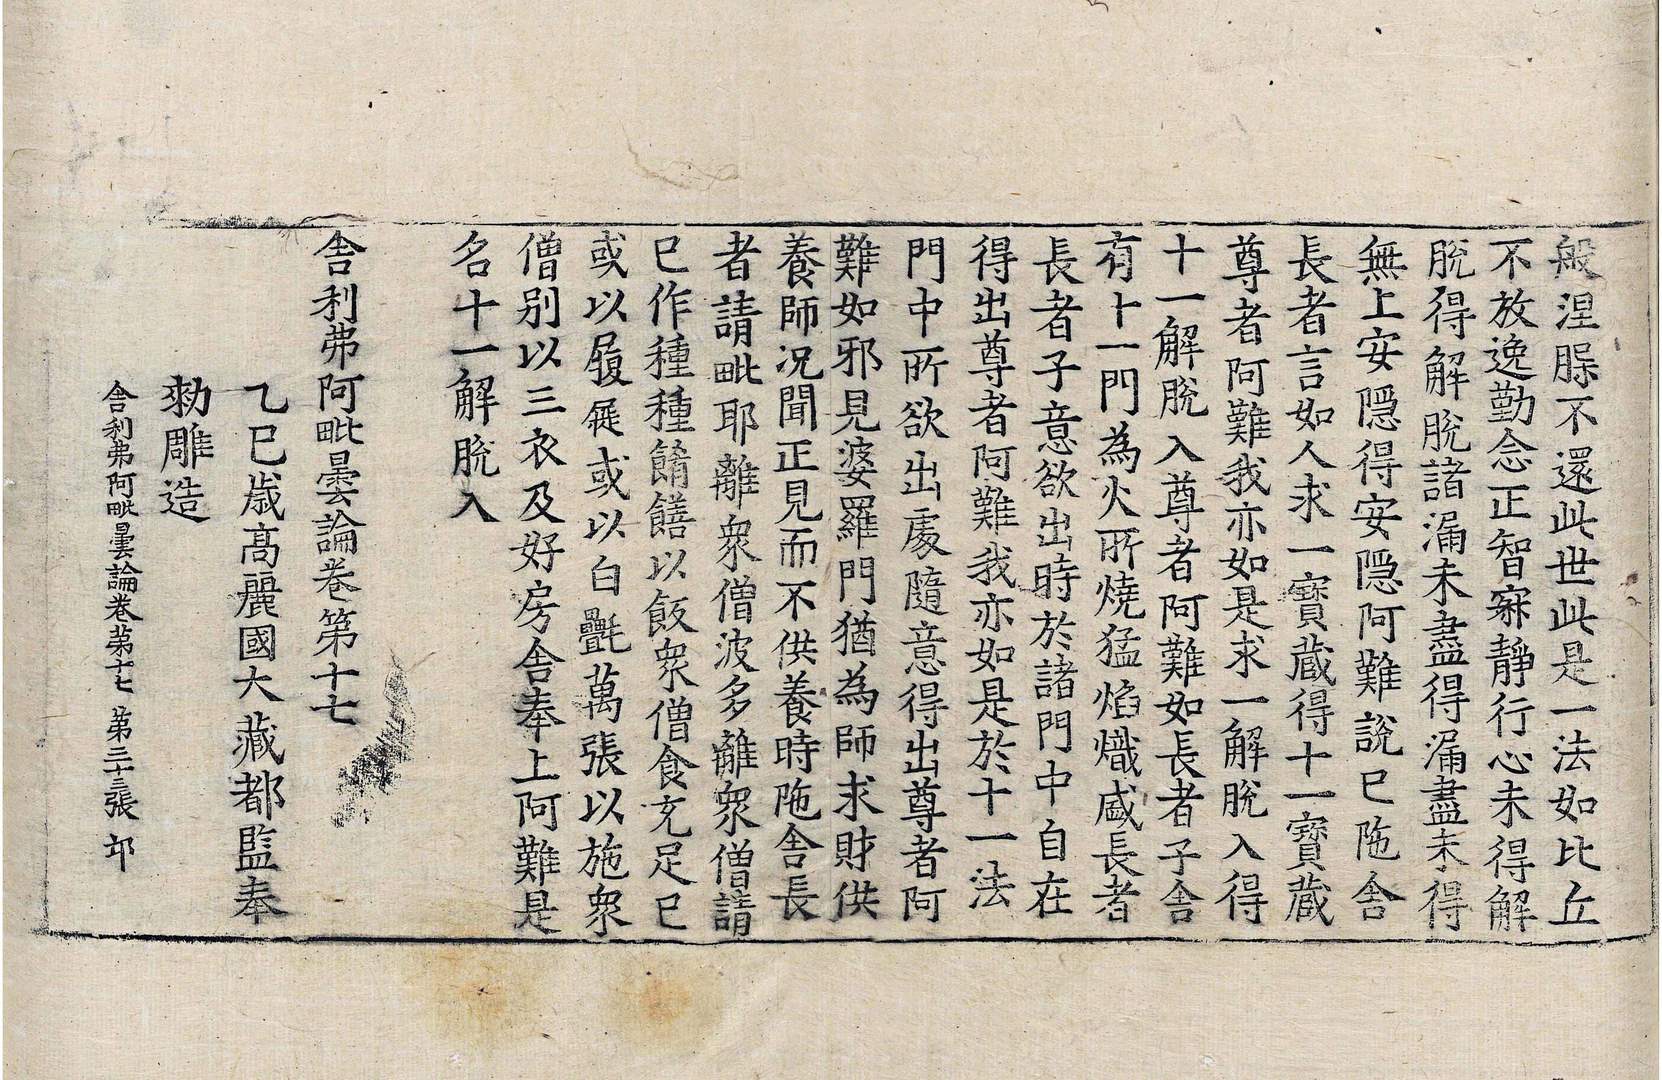 般涅脲不還此世此是一法如比丘
不放逸勤念正智寂靜行心未得解
脫得解脫諸漏未盡得漏盡未得
無上安隱得安隱阿難說已陁舍
長者言如人求一寶藏得十一寶藏
尊者阿難我亦如是求一解脫入得
十一解脫入尊者阿難如長者子舍
有十一門為火所燒猛焰熾盛長者
長者子意欲出時於諸門中自在
得出尊者阿難我亦如是於十一法
門中所欲出處隨意得出尊者阿
難如邪見婆羅門猶為師求財供
養師況聞正見而不供養時陁舍長
者請毗耶離衆僧波多離衆僧請
已作種種餚饍以飯衆僧食充足已
或以履屣或以白㲲萬張以施衆
僧別以三衣及好房舍奉上阿難是
名十一解脫入
舍利弗阿毗曇論卷第十七
乙巳歲髙麗國大藏都監奉
勑雕造
舍利弗阿毗曇論卷第十七 第三十三張 邙